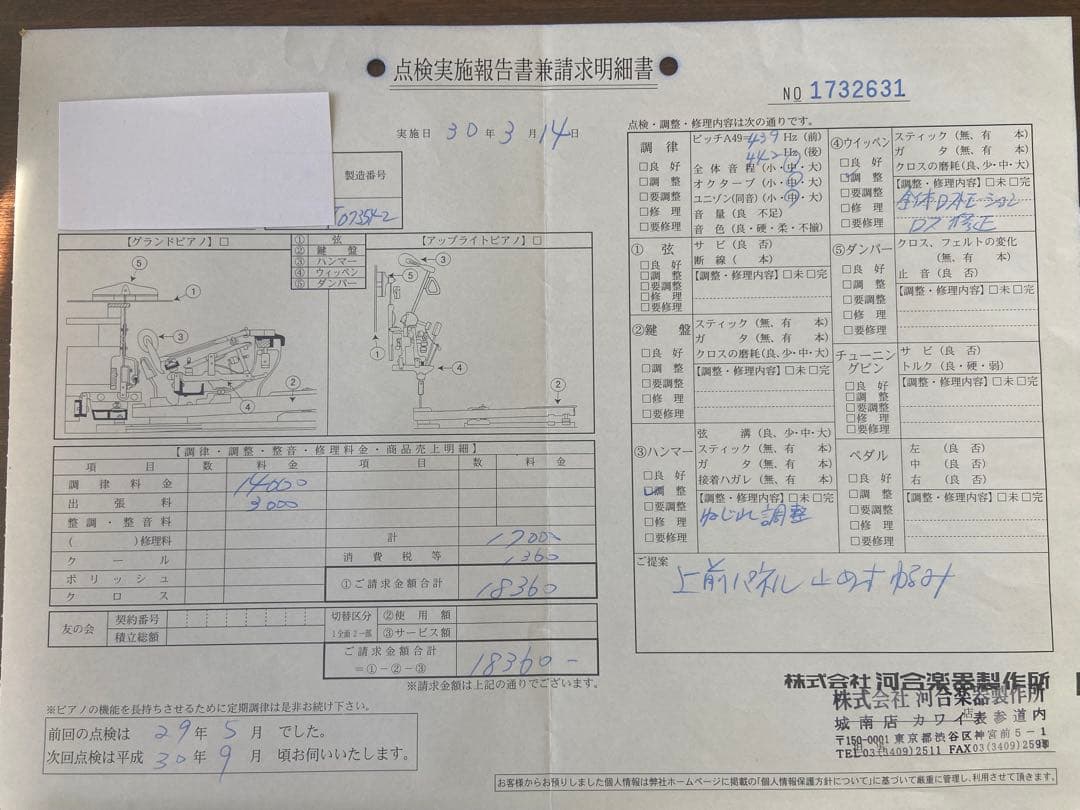 点検実施報告書兼請求明細書
NO 1732631
実施日 30年3月14日
製造番号
【グランドピアノ】□
① 弦
② 鍵盤
③ ハンマー
④ ウィッペン
⑤ ダンパー
【アップライトピアノ】□
⑤
①
③
④
②
③
⑤
①
④
②
【調律・調整・整音・修理料金・商品売上明細】
項目 数 料金 項目 数 料金
調律料金 14000
出張料 3000
整調・整音料
( )修理料 計 17000
クール 消費税等 1360
ポリッシュ ①ご請求金額合計 18360
クロス
友の会 契約番号 切替区分 ②使用額
積立総額 1全面2一部 ③サービス額
ご請求金額合計
=①-②-③ 18360-
※請求金額は上記の通りでございます。
※ピアノの機能を長持ちさせるために定期調律は是非お続け下さい。
前回の点検は 29年5月でした。
次回点検は平成30年9月頃お伺いいたします。
点検・調整・修理内容は次の通りです。
調律
□良好
□調整
□要調整
□修理
□要修理
ピッチA49=439Hz(前)
442Hz(後)
全体音程(小・中・大)
オクターブ(小・中・大)
ユニゾン(同音)(小・中・大)
音量(良 不足)
音色(良・硬・柔・不揃)
①弦
□良好
□調整
□要調整
□修理
□要修理
サビ(良 否)
断線( 本)
【調整・修理内容】□未□完
②鍵盤
□良好
□調整
□要調整
□修理
□要修理
スティック(無、有 本)
ガタ(無、有 本)
クロスの磨耗(良、少・中・大)
【調整・修理内容】□未□完
③ハンマー
□良好
□調整
□要調整
□修理
□要修理
弦溝(良、少・中・大)
スティック(無、有 本)
ガタ(無、有 本)
接着ハガレ(無、有 本)
【調整・修理内容】□未□完
ねじれ調整
④ウイッペン
□良好
□調整
□要調整
□修理
□要修理
スティック(無、有 本)
ガタ(無、有 本)
クロスの磨耗(良、少・中・大)
【調整・修理内容】□未□完
全体ロストモーション
ロス修正
⑤ダンパー
□良好
□調整
□要調整
□修理
□要修理
クロス、フェルトの変化
(無、有 本)
止音(良 否)
【調整・修理内容】□未□完
チューニングピン
□良好
□調整
□要調整
□修理
□要修理
サビ(良 否)
トルク(良・硬・弱)
【調整・修理内容】□未□完
ペダル
□良好
□調整
□要調整
□修理
□要修理
左(良 否)
中(良 否)
右(良 否)
【調整・修理内容】□未□完
ご提案
上前パネル止めすゆるみ
株式会社 河合楽器製作所
株式会社 河合楽器製作所
城南店 カワイ表参道内
〒150-0001 東京都渋谷区神宮前5-1
TEL03(3409)2511 FAX03(3409)2598
お客様からお預りしました個人情報は弊社ホームページに掲載の「個人情報保護方針について」に基づいて厳重に管理し、利用させて頂きます。